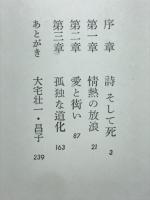 序章 詩 そして死 3
第一章 情熱の放浪 21
第二章 愛と衒い 87
第三章 孤独な道化 163
あとがき 大宅壮一・昌子 239